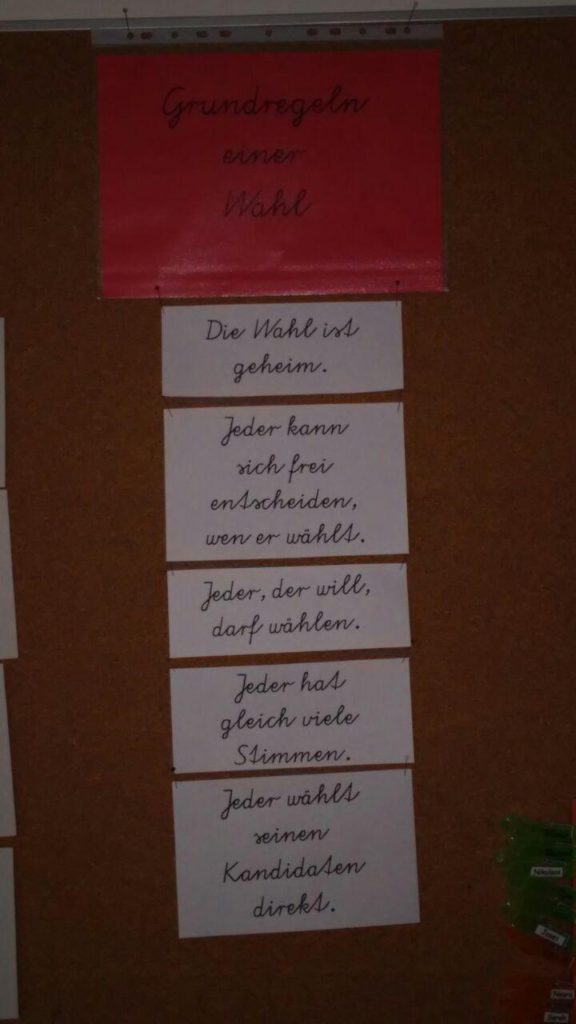 Grundregeln
einer
Wahl
Die Wahl ist
geheim.
Jeder kann
sich frei
entscheiden,
wen er wählt.
Jeder, der will,
darf wählen.
Jeder hat
gleich viele
Stimmen.
Jeder wählt
seinen
Kandidaten
direkt.